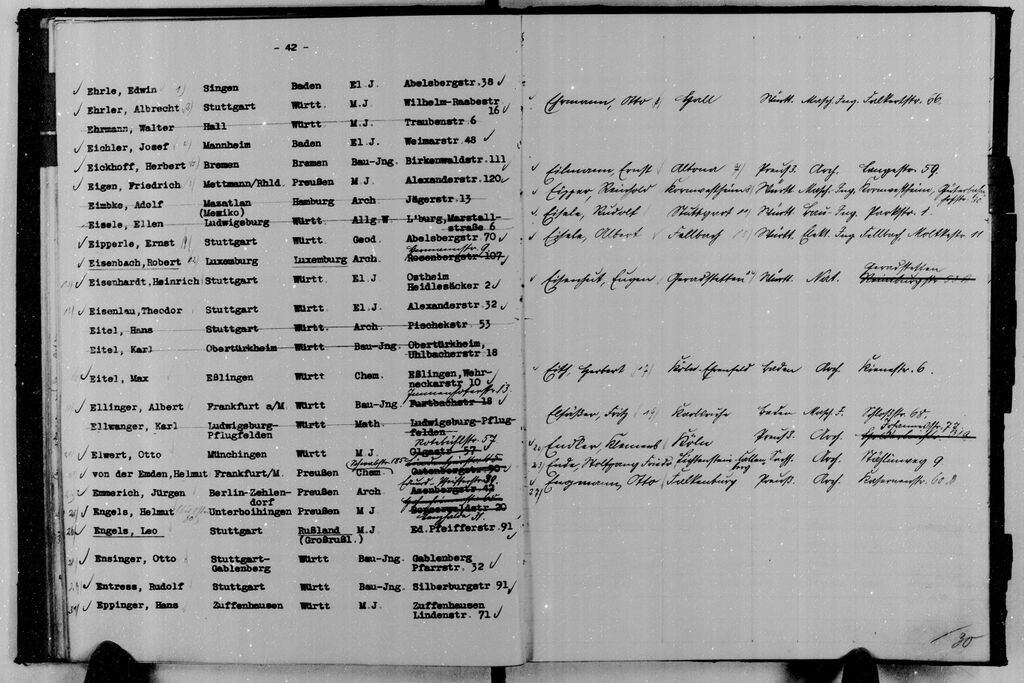 - 42 -
Ehrle, Edwin Singen Baden El J. Abelsbergstr.38
Ehrler, Albrecht Stuttgart Württ. M.J. Wilhelm-Raabestr
16
Ehrmann, Walter Hall Württ M.J. Traubenstr 6
Eichler, Josef Mannheim Baden El.J. Weimarstr.48
Eickhoff, Herbert Bremen Bremen Bau-Jng. Birkenwaldstr.111
Eigen, Friedrich Mettmann/Rhld. Preußen M.J. Alexanderstr.120
Eimbke, Adolf Mazatlan Hamburg Arch Jägerstr.13
(Mexiko)
Eisele, Ellen Ludwigsburg Württ. Allg.W L'burg,Marstall-
straße 6
Eipperle, Ernst Stuttgart Württ Geod. Abelsbergstr.70
Eisenbach,Robert Luxemburg Luxemburg Arch. Rosenbergstr 107
Eisenhardt,Heinrich Stuttgart Württ El.J Ostheim
Heidlesäcker 2
Eisenlau,Theodor Stuttgart Württ. El.J. Alexanderstr.32
Eitel, Hans Stuttgart Württ. Arch. Pischekstr 53
Eitel, Karl Obertürkheim Württ Bau-Jng. Obertürkheim,
Uhlbacherstr 18
Eitel, Max Eßlingen Württ Chem. Eßlingen,Wehr-
neckarstr 10
Ellinger, Albert Frankfurt a/M. Württ Bau-Jng Furtbachstr 18
Ellwanger, Karl Ludwigsburg- Württ Math Ludwigsburg-Pflug-
Pflugfelden felden
Rotebühlstr. 57
Elwert, Otto Münchingen Württ M.J Olgastr 57
von der Emden,Helmut Frankfurt/M. Preußen Chem Gutenbergstr
Emmerich, Jürgen Berlin-Zehlen- Preußen Arch Asenbergstr
dorf
Engels, Helmut Unterboihingen Preußen M J
Engels, Leo Stuttgart Rußland M.J Ed.Pfeifferstr.91
(Großrußl.)
Ensinger, Otto Stuttgart- Württ Bau-Jng. Gablenberg
Gablenberg Pfarrstr. 32
Entress, Rudolf Stuttgart Württ Bau-Jng. Silberburgstr 91
Eppinger, Hans Zuffenhausen Württ M.J. Zuffenhausen
Lindenstr. 71
Ehrmann, Otto Hall Württ. Masch. Ing. Falkertstr. 56.
Eilmann, Ernst Altona Preuß. Arch. Langestr. 59.
Eipper, Reinhold Kornwestheim Württ Masch. Ing. Kornwestheim,
Eisele, Rudolf Stuttgart Württ. Bau. Ing. Parkstr. 1.
Eisele, Albert Fellbach Württ. Elekt. Ing. Fellbach, Moltkestr 11
Geradstetten
Eisenhut, Eugen Geradstetten Württ. Nat.
Eith, Herbert Köln-Ehrenfeld Baden Arch. Kienestr. 6.
Elsäßer, Fritz Karlsruhe Baden Masch. J. Schloßstr. 68.
Endler, Klemens Köln Preuß. Arch.
Ende, Wolfgang Arch.
Engmann, Otto Falkenburg Preuß. Arch. Kasernenstr. 60
30